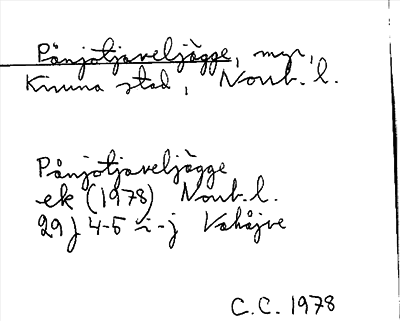 Pånjotjaveljågge, myr,
Kiruna stad, Norrb. l.
Pånjotjaveljågge
ek (1978) Norrb. l.
29J 4-5 i-j Vahåjve
C.C. 1978